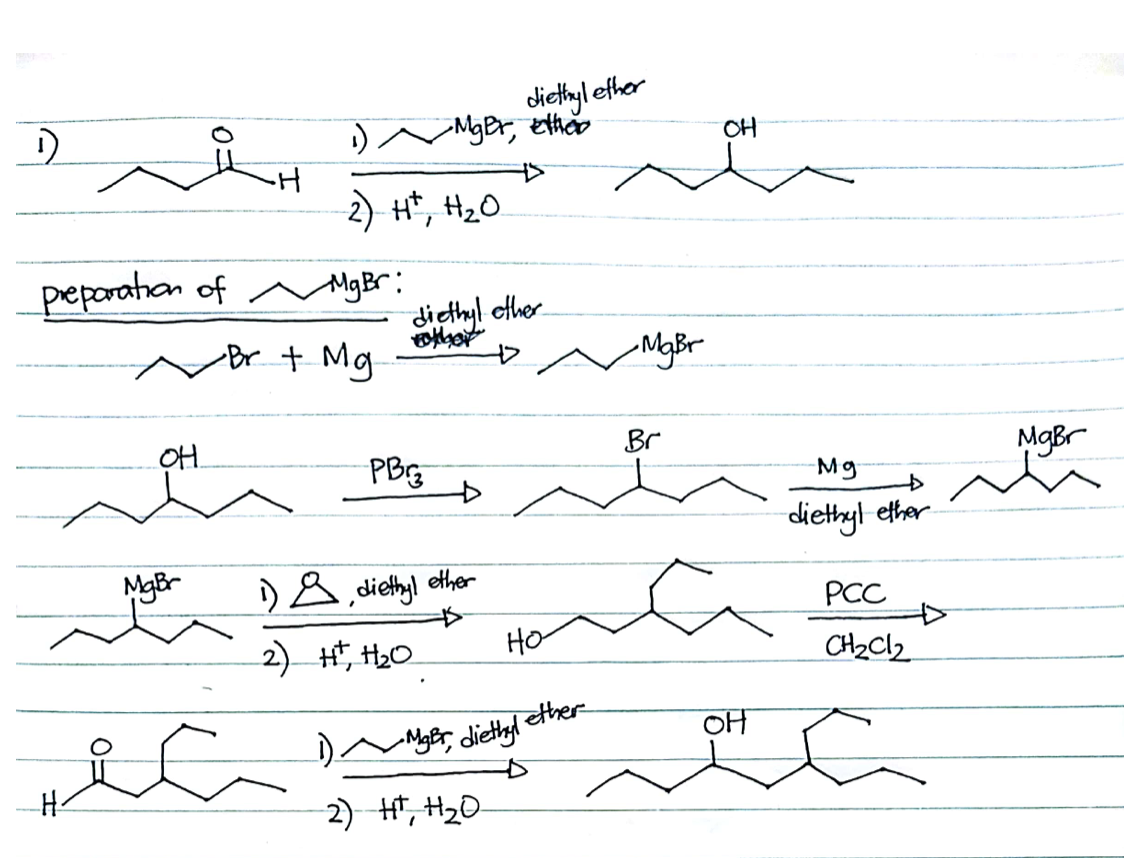 1) O H 1) MgBr, diethyl ether OH
2) H⁺, H₂O
preparation of MgBr:
Br + Mg diethyl ether MgBr
OH PBr₃ Br Mg diethyl ether MgBr
MgBr 1) O, diethyl ether HO PCC
2) H⁺, H₂O CH₂Cl₂
O H 1) MgBr, diethyl ether OH
2) H⁺, H₂O